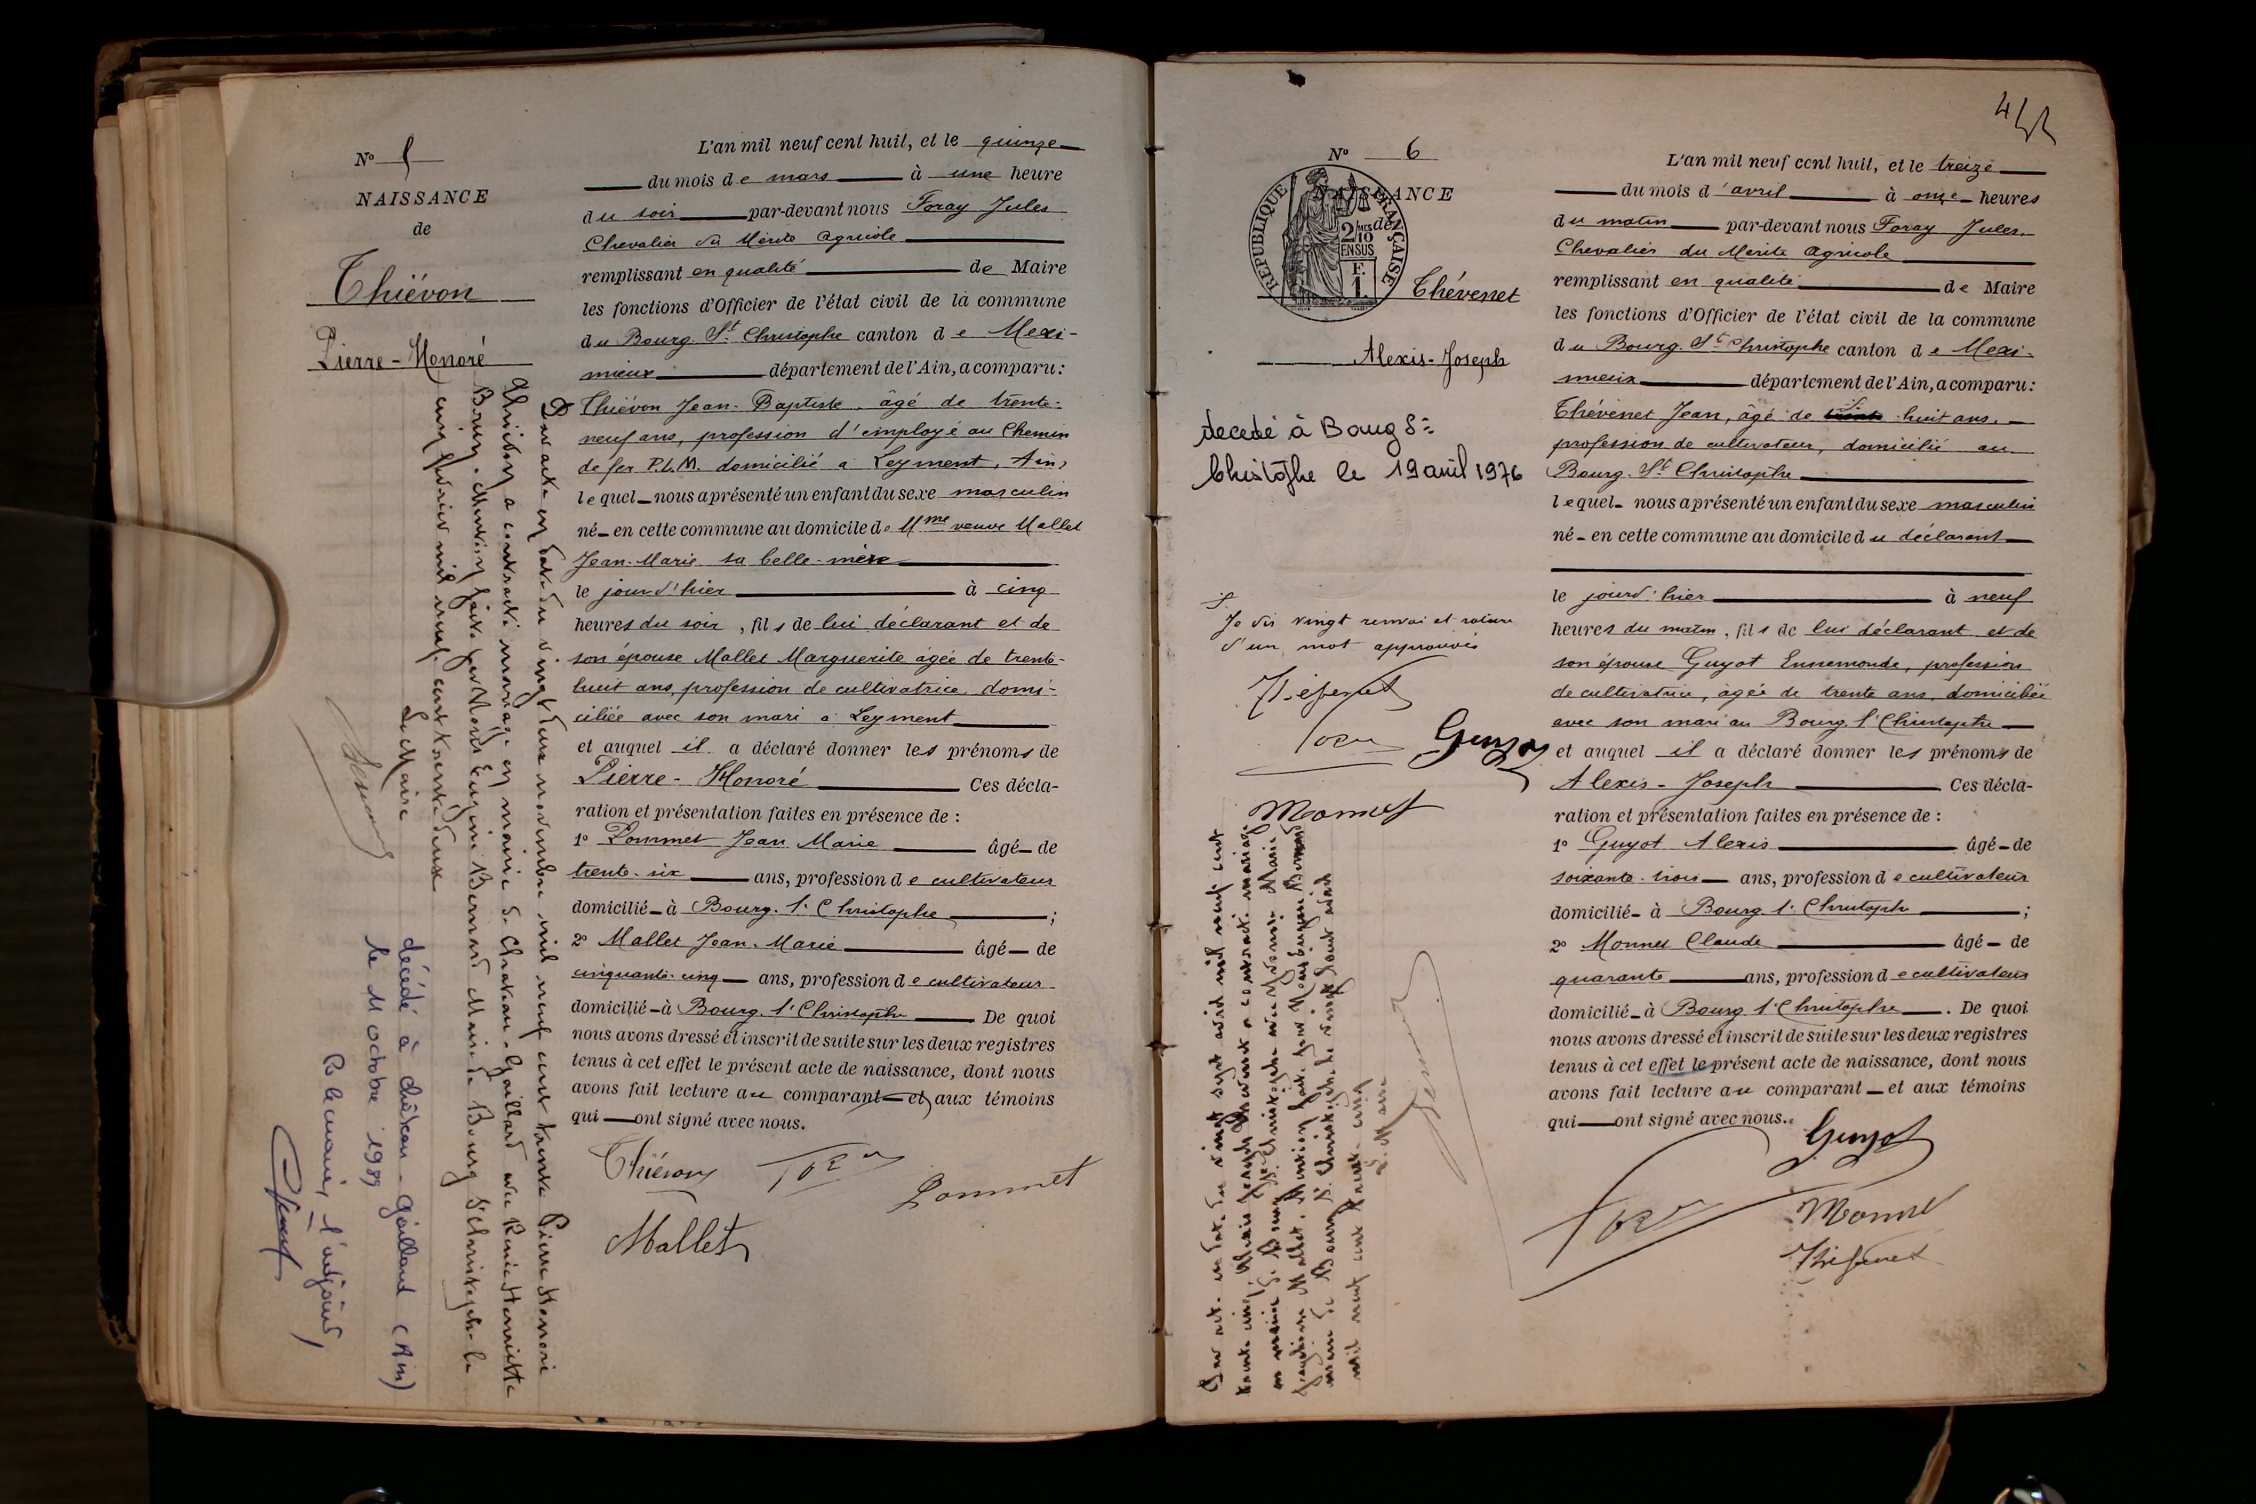 N° 5
NAISSANCE
de
Thiévon
Pierre-Honoré
L'an mil neuf cent huit, et le quinze
du mois de mars à une heure
du soir par-devant nous Foray Jules
Chevalier du Mérite Agricole
remplissant en qualité de Maire
les fonctions d'Officier de l'état civil de la commune
du Bourg-St-Christophe canton de Mexi-
mieux département de l'Ain, a comparu :
Thiévon Jean-Baptiste, âgé de trente-
neuf ans, profession d'employé au Chemin
de fer P.L.M. domicilié à Leyment, Ain,
lequel nous a présenté un enfant du sexe masculin
né en cette commune au domicile de Mme veuve Mallet
Jean-Marie sa belle-mère
le jour d'hier à cinq
heures du soir, fils de lui déclarant et de
son épouse Mallet Marguerite âgée de trente-
huit ans, profession de cultivatrice domi-
ciliée avec son mari à Leyment
et auquel il a déclaré donner les prénoms de
Pierre-Honoré Ces décla-
ration et présentation faites en présence de :
1° Pommet Jean Marie âgé de
trente-six ans, profession de cultivateur
domicilié à Bourg-St-Christophe ;
2° Mallet Jean-Marie âgé de
cinquante-cinq ans, profession de cultivateur
domicilié à Bourg-St-Christophe De quoi
nous avons dressé et inscrit de suite sur les deux registres
tenus à cet effet le présent acte de naissance, dont nous
avons fait lecture au comparant et aux témoins
qui ont signé avec nous.
Thiévon Foray Pommet
Mallet
Par acte en date du vingt deux novembre mil neuf cent trente Pierre Honoré
Thiévon a contracté mariage en mairie de Chateau-Gaillard avec Henriette
Mention faite par Bernard Maire de Bourg St Christophe le
cinq février mil neuf cent trente deux
Le Maire
décédé à château-gaillard (Ain)
le 11 octobre 1989
l'adjoint,
442
N° 6
NAISSANCE
de
RÉPUBLIQUE FRANÇAISE
2/10 EN SUS
F. 1
Thévenet
Alexis-Joseph
décédé à Bourg St
Christophe le 19 avril 1976
Je dis vingt renvoi et rature
d'un mot approuvés
Thévenet
Foray Guyot
Monnet
Par acte en date du vingt sept avril mil neuf cent
trente cinq Alexis Joseph Thévenet a contracté mariage
en mairie de Bourg St Christophe avec Marie
Mallet. Mention faite par Nous Bernard
maire de Bourg St Christophe le vingt huit avril
mil neuf cent trente cinq
Le Maire
L'an mil neuf cent huit, et le treize
du mois d'avril à onze heures
du matin par-devant nous Foray Jules
Chevalier du Mérite Agricole
remplissant en qualité de Maire
les fonctions d'Officier de l'état civil de la commune
du Bourg-St-Christophe canton de Mexi-
mieux département de l'Ain, a comparu :
Thévenet Jean, âgé de trente huit ans,
profession de cultivateur, domicilié au
Bourg-St-Christophe
lequel nous a présenté un enfant du sexe masculin
né en cette commune au domicile du déclarant
le jour d'hier à neuf
heures du matin, fils de lui déclarant et de
son épouse Guyot Ennemonde, profession
de cultivatrice, âgée de trente ans, domiciliée
avec son mari au Bourg St Christophe
et auquel il a déclaré donner les prénoms de
Alexis-Joseph Ces décla-
ration et présentation faites en présence de :
1° Guyot Alexis âgé de
soixante-trois ans, profession de cultivateur
domicilié à Bourg St Christophe ;
2° Monnet Claude âgé de
quarante ans, profession de cultivateur
domicilié à Bourg St Christophe. De quoi
nous avons dressé et inscrit de suite sur les deux registres
tenus à cet effet le présent acte de naissance, dont nous
avons fait lecture au comparant et aux témoins
qui ont signé avec nous.
Guyot
Foray Monnet
Thévenet